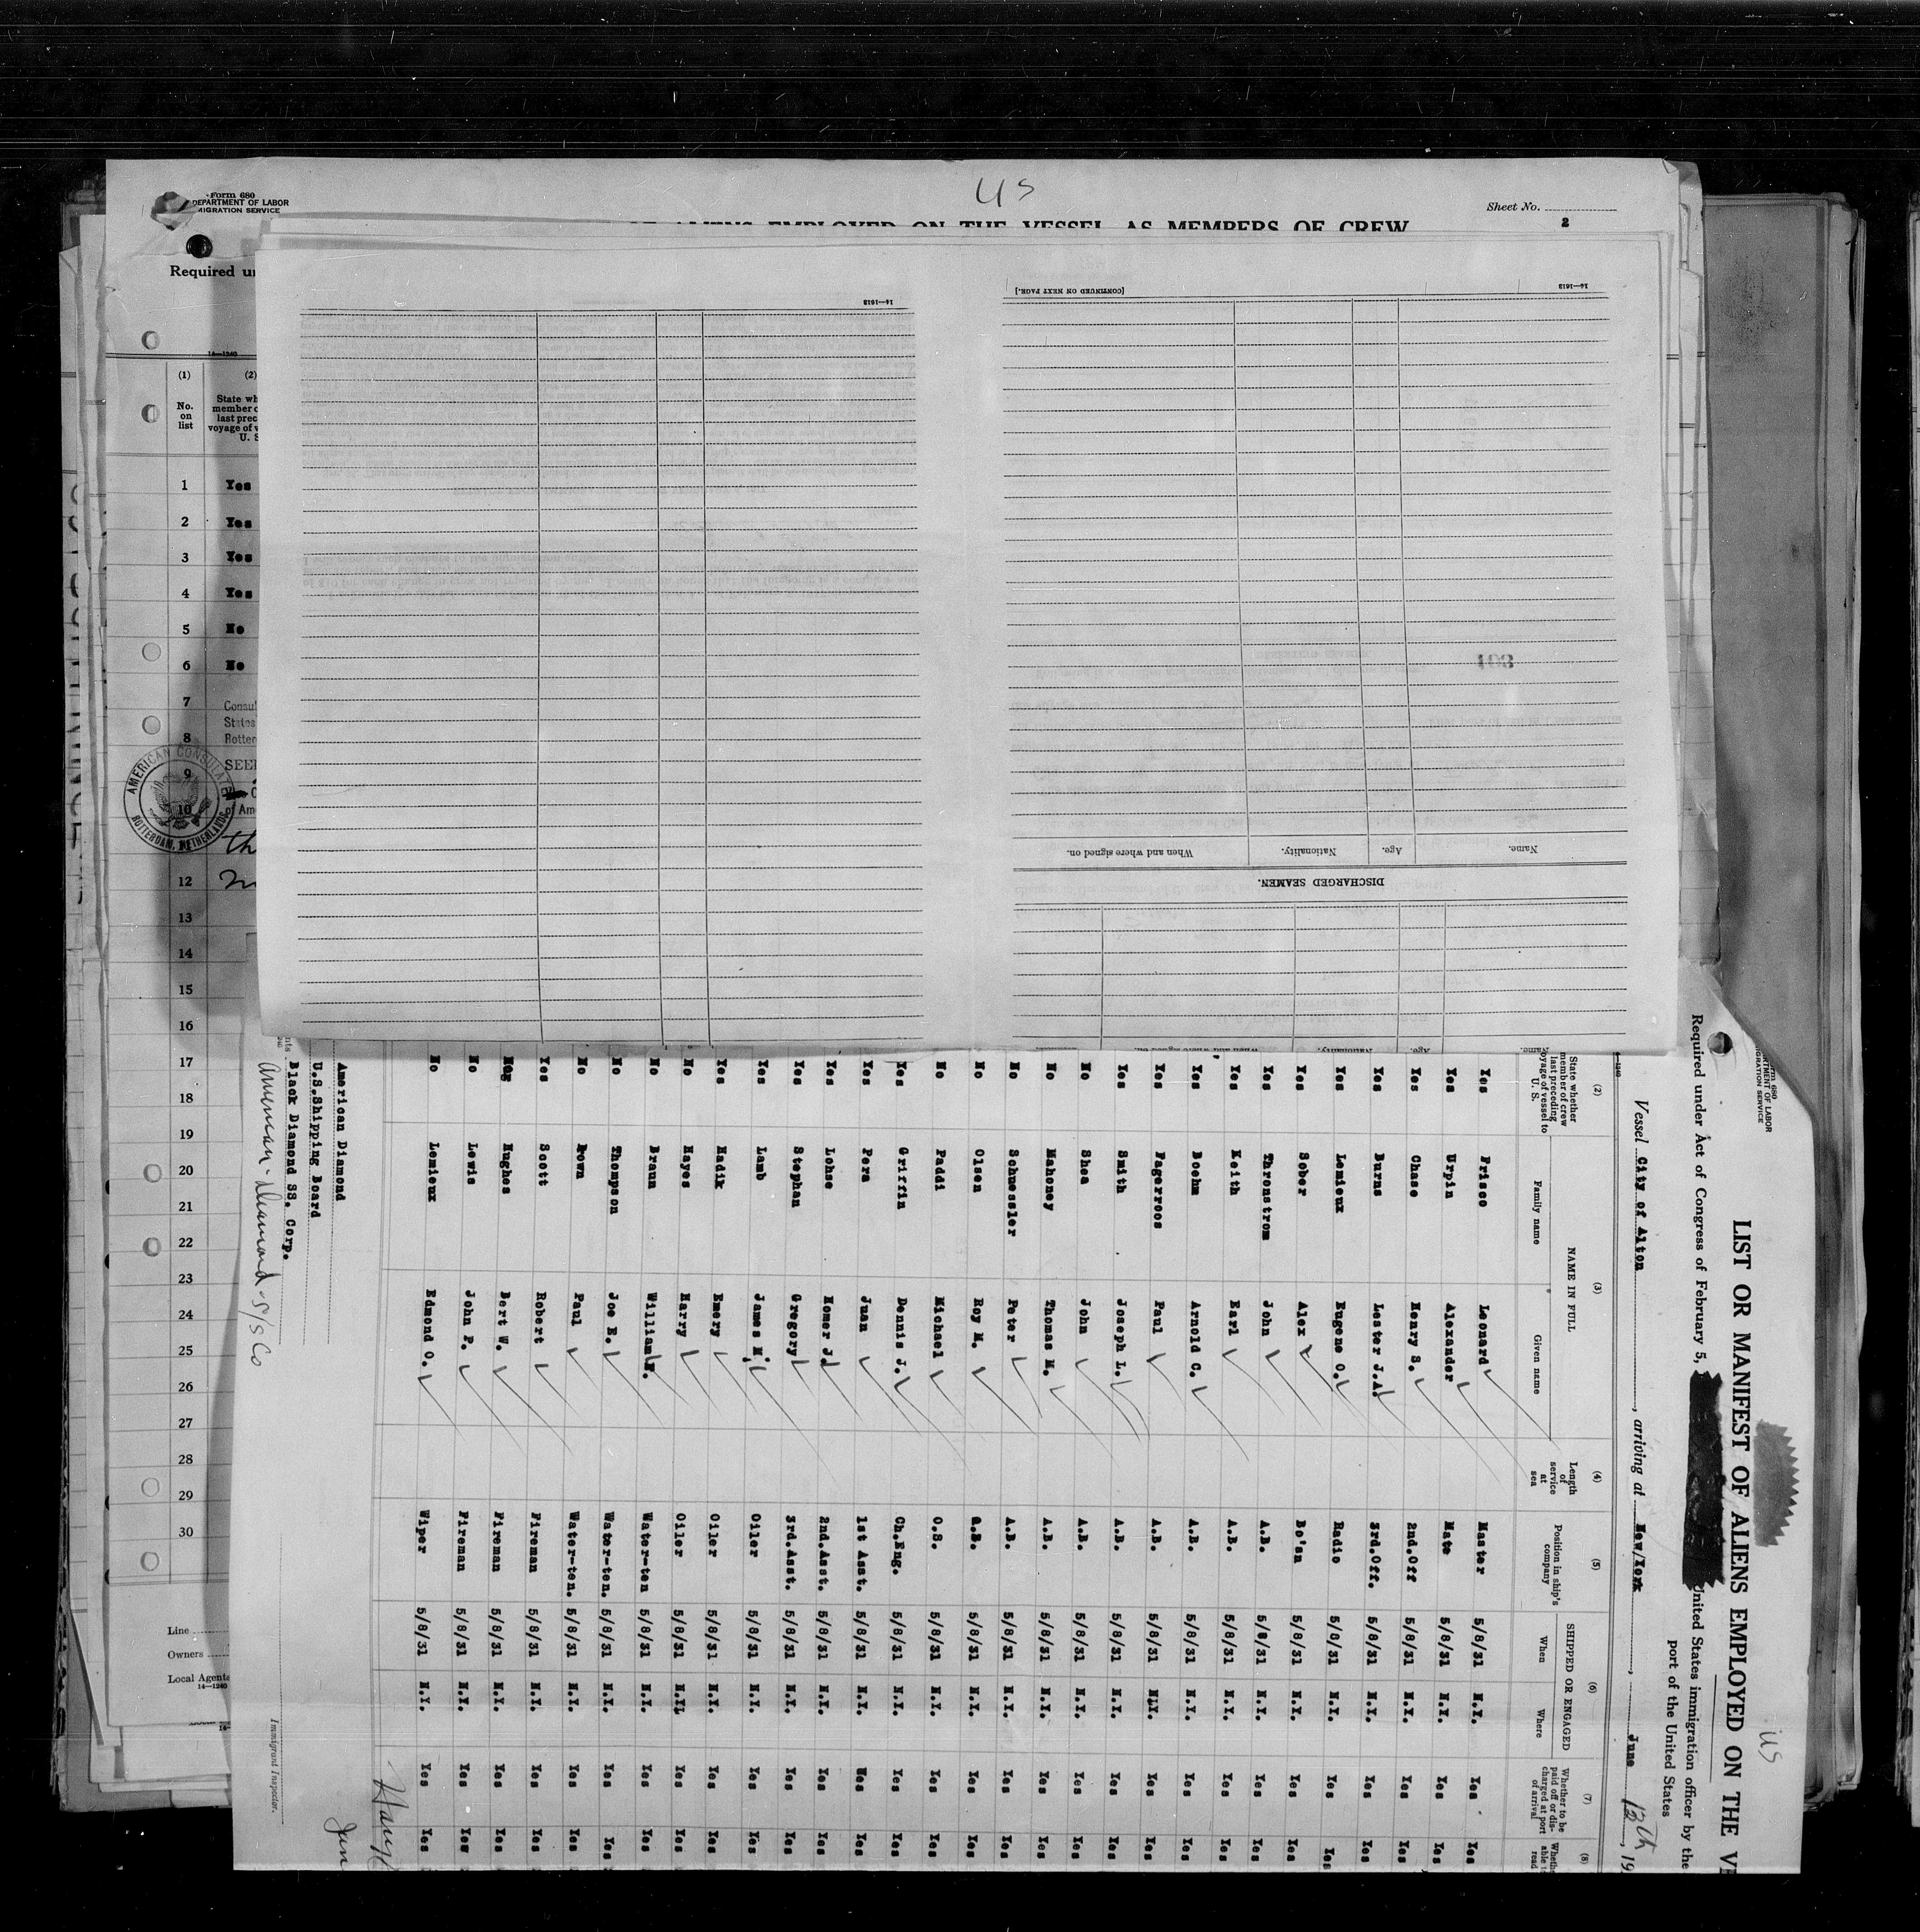 Form 680
DEPARTMENT OF LABOR
MIGRATION SERVICE
US
Sheet No.
2
EMPLOYED ON THE VESSEL AS MEMBERS OF CREW
Required un
14—1240
(1)
(2)
No.
on
list
State wh
member o
last prec
voyage of v
U. S
1 Yes
2 Yes
3 Yes
4 Yes
5 No
6 No
7
8
9
10
12
13
14
15
16
17
18
19
20
21
22
23
24
25
26
27
28
29
30
Consul
States
Rotter
SEEN
of Ame
AMERICAN CONSULATE
ROTTERDAM, NETHERLANDS
Line
Owners
Local Agents
14—1240
14—1613
[CONTINUED ON NEXT PAGE.]
14—1613
103
Name. Age. Nationality. When and where signed on.
DISCHARGED SEAMEN.
Name. Age. Nationality. When and where signed on.
Form 680
DEPARTMENT OF LABOR
MIGRATION SERVICE
US
LIST OR MANIFEST OF ALIENS EMPLOYED ON THE VE
Required under Act of Congress of February 5, United States immigration officer by the
port of the United States
Vessel City of Alton, arriving at New/York, June 13th, 19
(2) (3) (4) (5) (6) (7) (8)
State whether member of crew last preceding voyage of vessel to U. S.
NAME IN FULL
Family name Given name
Length of service at sea
Position in ship's company
SHIPPED OR ENGAGED
When Where
Whether to be paid off or discharged at port of arrival
Yes Frisco Leonard Master 5/8/31 N.Y. Yes Yes
Yes Urpin Alexander Mate 5/8/31 N.Y. Yes Yes
Yes Chase Henry S. 2nd.Off 5/8/31 N.Y. Yes Yes
Yes Burns Lester J.A. 3rd.Off. 5/8/31 N.Y. Yes Yes
No Lemieux Eugene O. Radio 5/8/31 N.Y. Yes Yes
Yes Sober Alex Bo'sn 5/8/31 N.Y. Yes Yes
Yes Thronstrom John A.B. 5/8/31 N.Y. Yes Yes
Yes Keith Earl A.B. 5/8/31 N.Y. Yes Yes
Yes Boehm Arnold C. A.B. 5/8/31 N.Y. Yes Yes
Yes Fagerroos Paul A.B. 5/8/31 N.Y. Yes Yes
Yes Smith Joseph L. A.B. 5/8/31 N.Y. Yes Yes
No Shea John A.B. 5/8/31 N.Y. Yes Yes
No Mahoney Thomas M. A.B. 5/8/31 N.Y. Yes Yes
No Schuessler Peter A.B. 5/8/31 N.Y. Yes Yes
No Olsen Roy M. 5/8/31 N.Y. Yes Yes
No Faddi Michael O.S. 5/8/31 N.Y. Yes Yes
Yes Griffin Dennis J. Ch.Eng. 5/8/31 N.Y. Yes Yes
Yes Pera Juan 1st Asst. 5/8/31 N.Y. Yes
Yes Lohse Homer J. 2nd.Asst. 5/8/31 N.Y. Yes Yes
Yes Stephan Gregory 3rd.Asst. 5/8/31 N.Y. Yes Yes
Yes Lamb James M. Oiler 5/8/31 N.Y. Yes Yes
Yes Hadik Emery Oiler 5/8/31 N.Y. Yes Yes
No Hayes Harry Oiler 5/8/31 N.Y. Yes Yes
No Braun William H. Water-ten 5/8/31 N.Y. Yes Yes
No Thompson Joe E. Water-ten. 5/8/31 N.Y. Yes Yes
No Brown Paul Water-ten. 5/8/31 N.Y. Yes Yes
Yes Scott Robert Fireman 5/8/31 N.Y. Yes Yes
Hughes Bert W. Fireman 5/8/31 N.Y. Yes Yes
No Lewis John P. Fireman 5/8/31 N.Y. Yes Yes
No Lemieux Edmond O. Wiper 5/8/31 N.Y. Yes Yes
American Diamond
U.S.Shipping Board
Black Diamond SS. Corp.
American-Diamond-S/S Co
Immigrant Inspector.
Jun